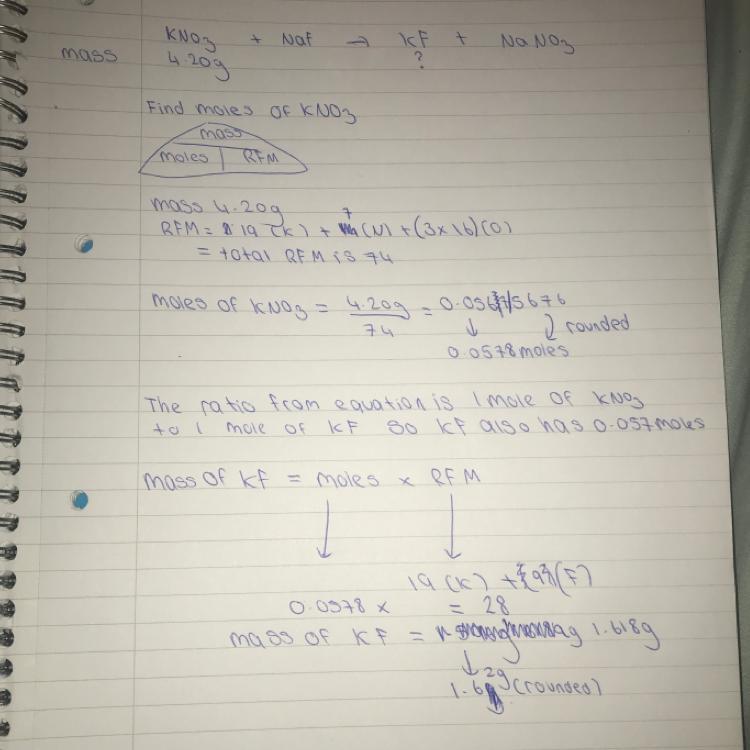 KNO3 + NaF → KF + NaNO3
mass 4.20g ?
Find moles of KNO3
mass
moles | RFM
mass 4.20g
RFM = 19 (K) + 7 (N) + (3×16)(O)
= total RFM is 74
moles of KNO3 = 4.20g / 74 = 
↓ ↓ rounded
0.0578 moles
The ratio from equation is 1 mole of KNO3
to 1 mole of KF so KF also has 0.057moles
mass of KF = moles × RFM
19 (K) + 9 (F)
0.0578 × = 28
mass of KF = 1.618g
↓
1.62g (rounded)